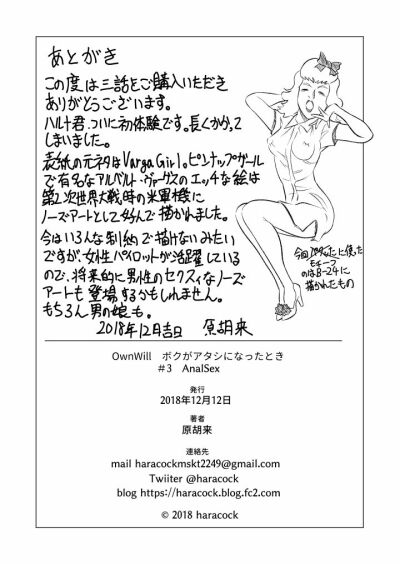 あとがき
この度は三話をご購入いただき
ありがとうございます。
ハルト君、ついに初体験です。長くかかって
しまいました。
表紙の元ネタはVarga Girl。ピンナップガール
で有名なアルベルト・ヴァーガスのエッチな絵は
第2次世界大戦時の米軍機に
ノーズアートとして好んで描かれました。
今はいろんな制約で描けないみたい
ですが、女性パイロットが活躍している
ので、将来的に男性のセクスィなノーズ
アートも登場するかもしれません。
もちろん男の娘も。
2018年12月吉日 原胡来
モチーフ
のはB-24に
描かれたもの
OwnWill ボクがアタシになったとき
#3 AnalSex
発行
2018年12月12日
著者
原胡来
連絡先
mail haracockmskt2249@gmail.com
Twiiter @haracock
blog https://haracock.blog.fc2.com
© 2018 haracock